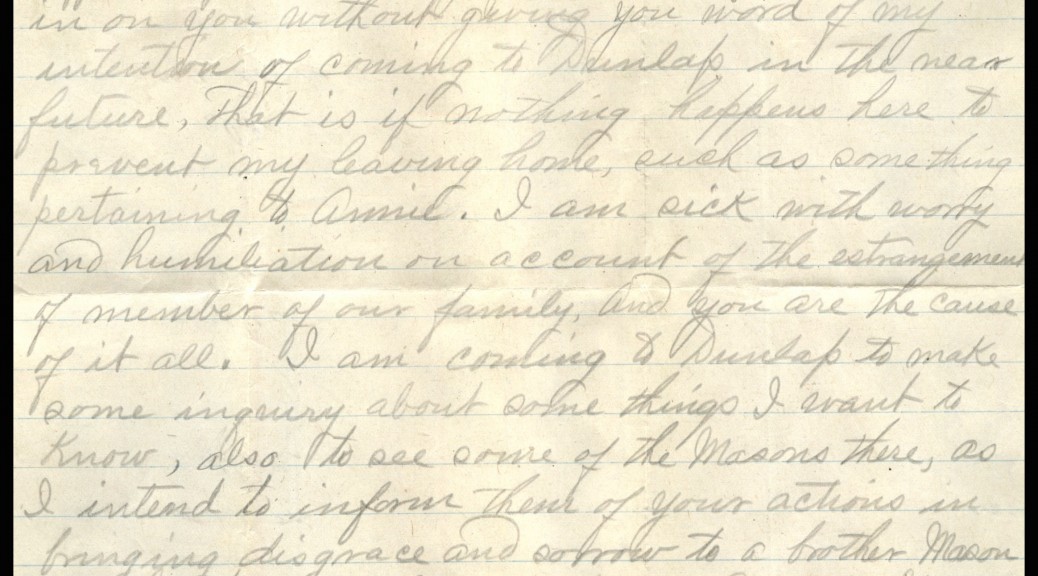 in on you without giving you word of my
intention of coming to Dunlap in the near
future, that is if nothing happens here to
prevent my leaving home, such as something
pertaining to Annie. I am sick with worry
and humiliation on account of the estrangement
of member of our family, and you are the cause
of it all. I am coming to Dunlap to make
some inquiry about some things I want to
know, also to see some of the Masons there, as
I intend to inform them of your actions in
bringing disgrace and sorrow to a brother Mason